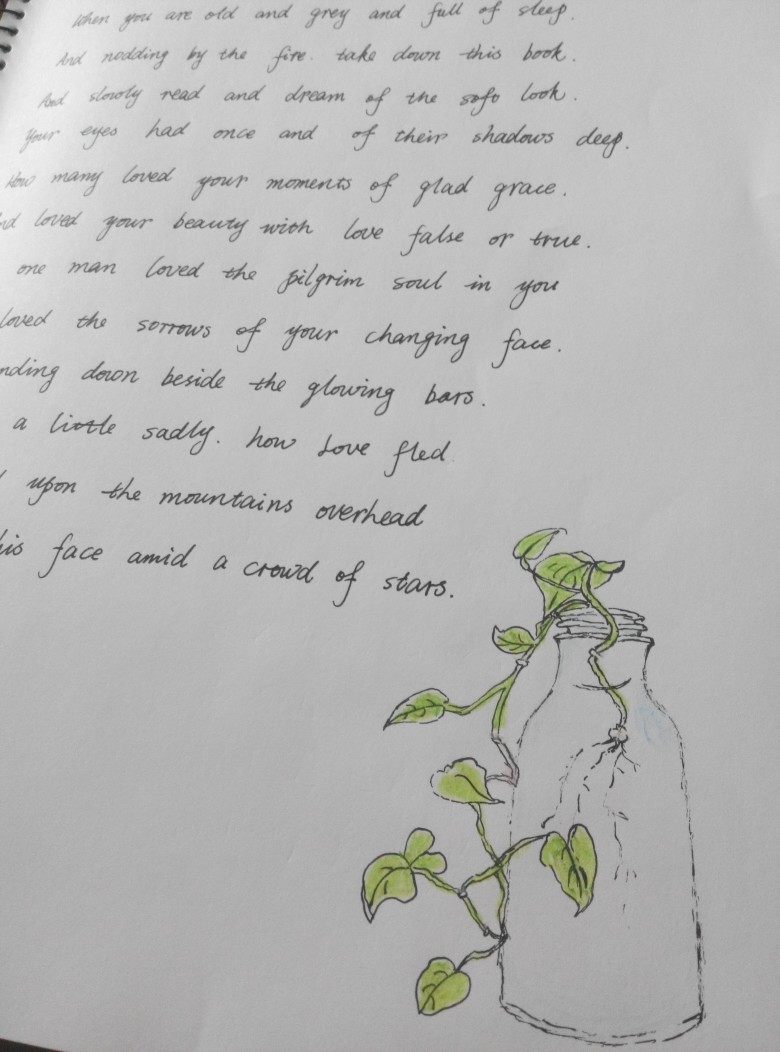 When you are old and grey and full of sleep.
And nodding by the fire. take down this book.
And slowly read and dream of the soft look.
Your eyes had once and of their shadows deep.
How many loved your moments of glad grace.
nd loved your beauty with love false or true.
one man loved the pilgrim soul in you
loved the sorrows of your changing face.
nding down beside the glowing bars.
a little sadly. how Love fled
upon the mountains overhead
his face amid a crowd of stars.